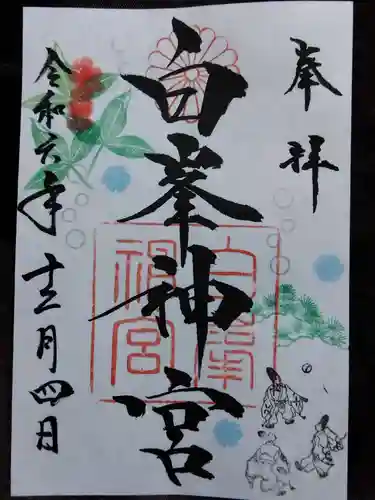 奉拝
白峯神宮
令和六年十二月四日
白峯
神宮